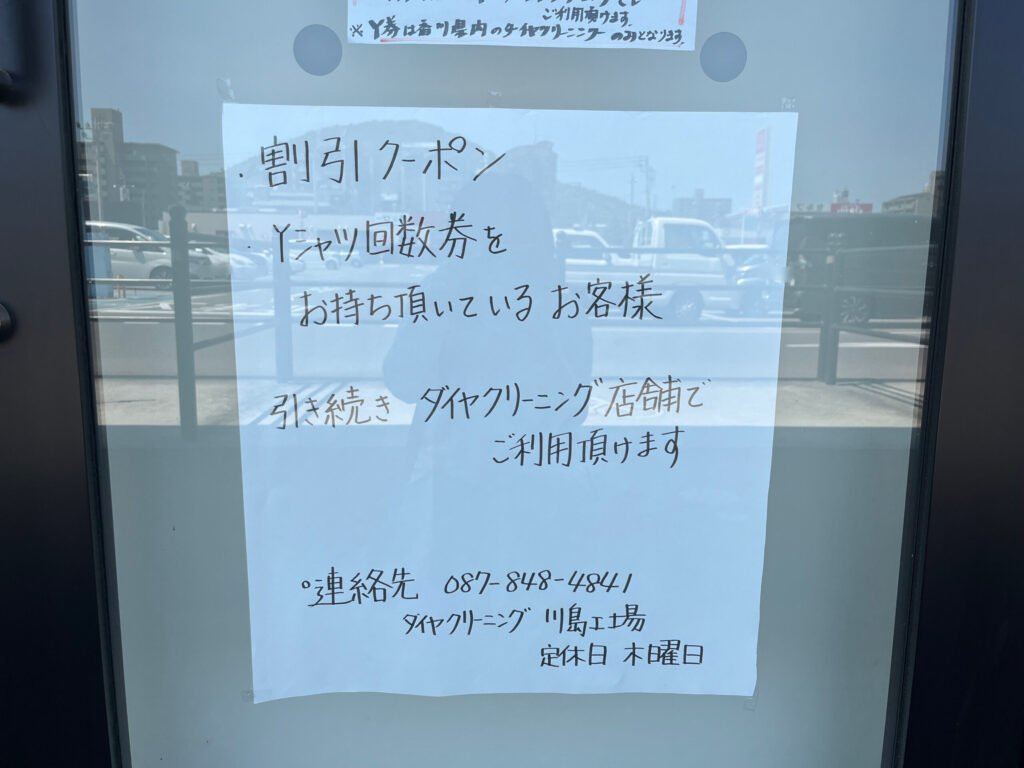 ご利用頂けます。
※Y券は香川県内のダイヤクリーニングのみとなります。
・割引クーポン
・Yシャツ回数券を
お持ち頂いているお客様
引き続き ダイヤクリーニング店舗で
ご利用頂けます
○連絡先 087-848-4841
ダイヤクリーニング 川島工場
定休日 木曜日